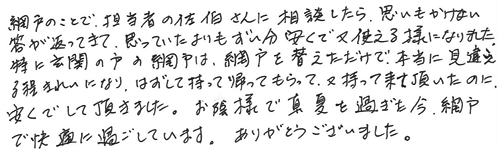 網戸のことで、担当者の佐伯さんに相談したら、思いもかけない
答が返ってきて、思っていたよりもずい分安くて又使える様になりました。
特に玄関の戸の網戸は、網戸を替えただけで、本当に見違え
る程きれいになり、はずして持って帰ってもらって、又持って来て頂いたのに、
安くでして頂きました。お陰様で真夏も過ぎた今、網戸
で快適に過ごしています。ありがとうございました。